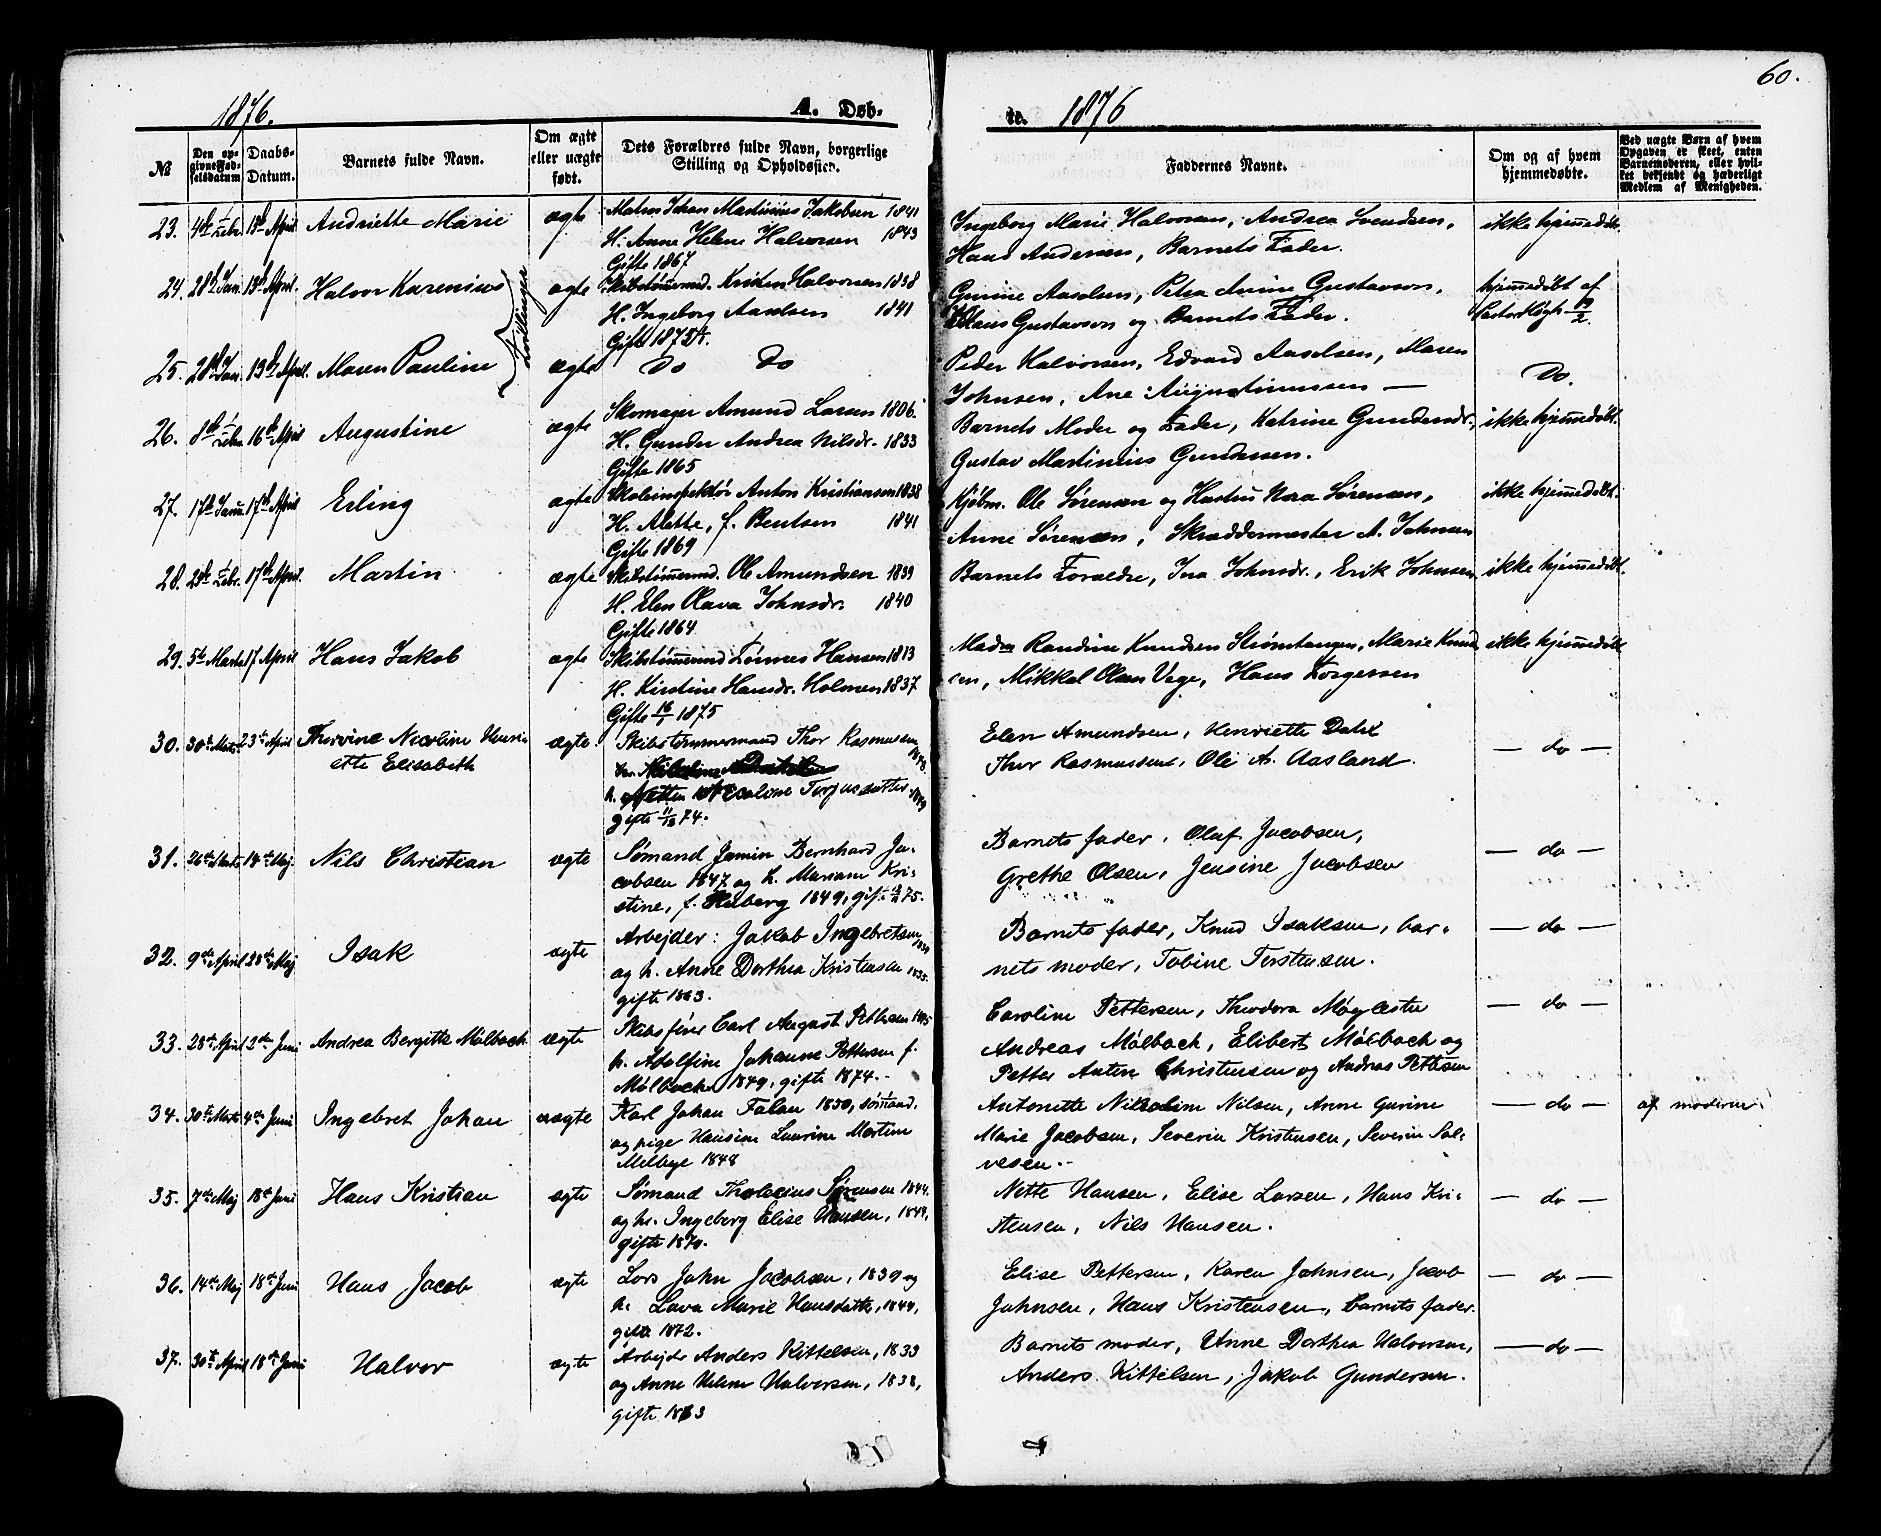 60.
1876. A. Døb-
te. 1876
№
Den op-
givne Fød-
selsdatum
Daabs-
Datum.
Barnets fulde Navn.
Om ægte
eller uægte
født.
Dets Forældres fulde Navn, borgerlige
Stilling og Opholdssted.
Faddernes Navne.
Om og af hvem
hjemmedøbte.
Ved uægte Børn af hvem
Opgaven er skeet, enten
Barnemoderen, eller hvil-
ket bekjendt og hæderligt
Medlem af Menigheden.
23. 4de Febr. 13de April Andriette Marie ægte Matros Johan Martinius Jakobsen 1841
H. Anne Helene Halvorsen 1843
Gifte 1867
Ingeborg Marie Halvorsen, Andrea Svendsen, ikke hjemmedøbt.
Hans Andersen, Barnets Fader.
24. 28de Jan. 13de April. Halvor Karenius Tvillinger ægte Skibstømmermd. Kristen Halvorsen 1838
H. Ingeborg Aaselsen 1841
Gifte 1875
Gurine Aaselsen, Petra Anine Gustavson, hjemmedøbt af
Hans Gustavson og Barnets Fader.
25. 28de Jan. 13de April. Maren Pauline ægte Do Do
Peder Halvorsen, Edvard Aaselsen, Maren Do.
Johnsen, Ane Augustinussen —
26. 8de Febr. 16de April Augustine ægte Skomager Amund Larsen 1806.
H. Gunder Andrea Nilsdr. 1833
Gifte 1865
Barnets Moder og Fader, Katrine Gundersdr., ikke hjemmedøbt.
Gustav Martinius Gundersen.
27. 17de Janu. 17de April Erling ægte Skoleinspektør Anton Kristiansen 1838
H. Alette, f. Bentsen 1841
Gifte 1869
Kjøbm. Ole Sørensen og Hustru Nora Sørensen, ikke hjemmedøbt.
Anne Sørensen, Skræddermester A. Johnsen
28. 29de Febr. 17de April. Martin ægte Skibstømmermd. Ole Amundsen 1839
H. Elen Olava Johnsdr. 1840
Gifte 1864
Barnets Forældre, Ina Johnsdr., Erik Johnsen. ikke hjemmedøbt.
29. 5te Marts 17 April Hans Jakob ægte Skibstømmermd Tønnes Hansen 1813
H. Kirstine Hansdr. Holmen 1837
Gifte 16/1 1875
Madm Randine Knudsen Strømtangen, Marie Knud ikke hjemmedøbt
sen, Mikkel Olsen Vege, Hans Torgersen
30. 30te Marts 23de April Thorvine Nicoline Henri-
ette Elisabeth ægte Skibstømmermand Thor Rasmussen 1848.
h. Nicoline Torjusdatter 1849
gifte 11/12 74.
Elen Amundsen, Henriette Dahl — do —
Thor Rasmussen, Ole A. Aasland.
31. 26de Marts 14de Maj Nils Christian ægte Sømand Jamin Bernhard Ja-
cobsen 1847 og h. Mariane Kri-
stine, f. Heiberg 1849, gif. 75.
Barnets fader, Oluf Jacobsen, — do —
Grethe Olsen, Jensine Jacobsen
32. 9de April 28de Maj Isak ægte Arbejder: Jakob Ingebretsen
og h. Anne Dorthea Kristensen 1835.
gifte 1863.
Barnets fader, Knud Isaksen, bar- — do —
nets moder, Tobine Terstensen.
33. 28de April 2den Juni Andrea Bergitte Mølbach ægte Skibsfører Carl August Pettersen 1845
h. Adolfine Johanne Pettersen f.
Mølbach 1849, gifte 1874.
Caroline Pettersen, Theodora Møglestu — do —
Andreas Mølbach, Elibert Mølbach og
Petter Anton Christensen og Andreas Pettersen
34. 30te Marts 4de Juni Ingebret Johan uægte Karl Johan Falan 1850, sømand.
og pige Hansine Laurine Martine
Melbye 1848
Antonette Nikoline Nilsen, Anne Gurine — do — af moderen.
Marie Jacobsen, Severin Kristensen, Severin Sal-
vesen.
35. 7de Maj 18de Juni Hans Kristian ægte Sømand Tholecius Sørensen 1844.
og h. Ingeborg Elise Hansen, 1849,
gifte 1870.
Nette Hansen, Elise Larsen, Hans Kri- — do —
stensen, Nils Hansen.
36. 14de Maj 18de Juni Hans Jacob ægte Lods John Jacobsen, 1839 og
h. Lava Marie Hansdatter, 1844,
gifte 1872.
Elise Pettersen, Karen Johnsen, Jacob — do —
Johnsen, Hans Kristensen, barnets fader.
37. 30te April 18de Juni Halvor ægte Arbejder Anders Kittelsen, 1833
og Anne Helene Halvorsen, 1838,
gifte 1863
Barnets moder, Anne Dorthea Halvorsen, — do —
Anders Kittelsen, Jakob Gundersen.